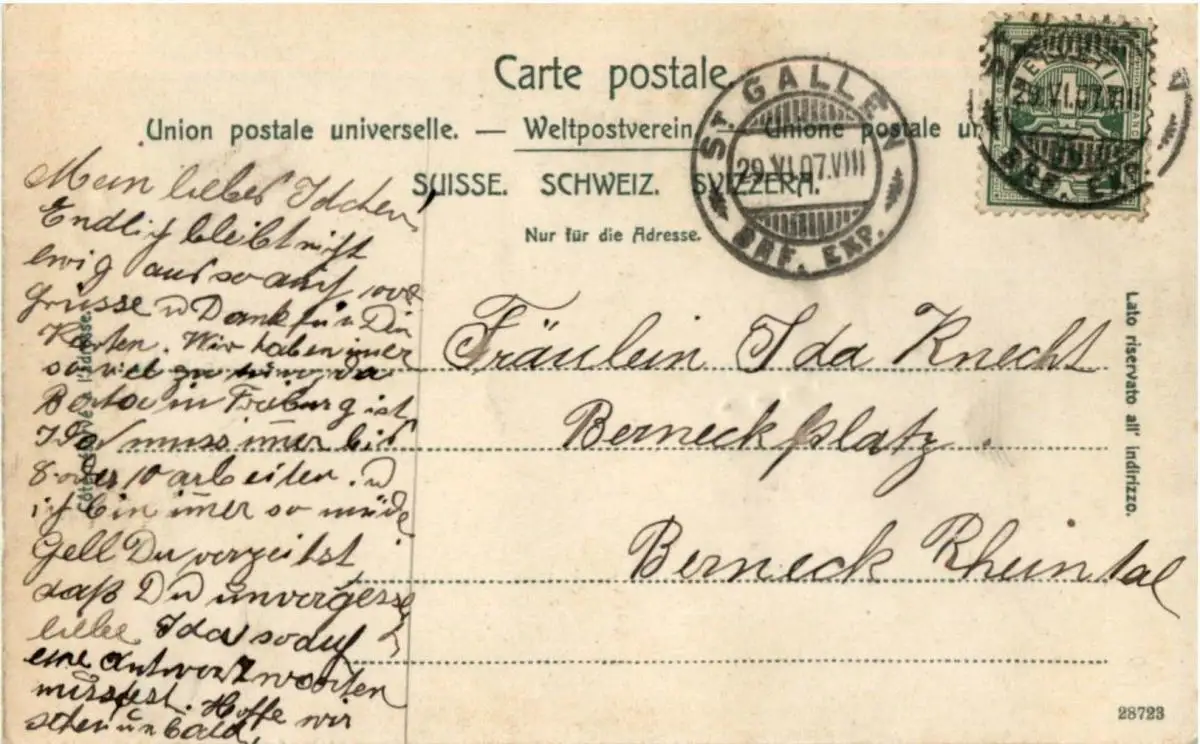 Carte postale.
Union postale universelle. — Weltpostverein. — Unione postale un
SUISSE. SCHWEIZ. SVIZZERA.
Nur für die Adresse.
ST. GALLEN
29.VI.07.VIII
BRF. EXP.
HELVETIA
29.VI.07.VIII
BRF. EXP.
Mein liebes Idchen!
Endlich bleibt nicht
ewig aus so auch
Grüsse u Dank für Din
Karten. Wir haben imer
so viel zu da
in Freiburg ist
Ida muss imer bis
8 oder 10 arbeiten. u
ich bin imer so müde
Gell Du verzeihst
daß Du unvergessl
liebe Ida so auf
eine Antwort warten
musstest. Hoffe wir
sehen uns bald
Fräulein Ida Knecht
Berneckplatz.
Berneck Rheintal
Côté réservé à l'adresse.
Lato riservato all' indirizzo.
28723